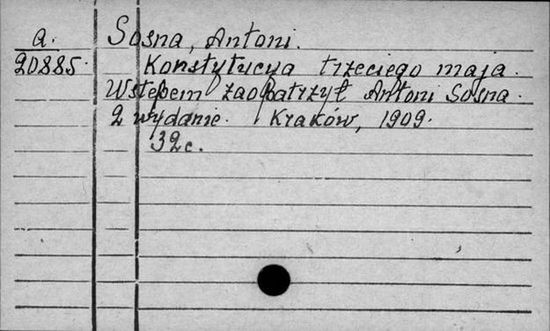 a.
20885.
Sosna, Antoni.
Konstytucya trzeciego maja.
Wstępem zaopatrzył Antoni Sosna.
2 wydanie. Kraków, 1909.
32c.